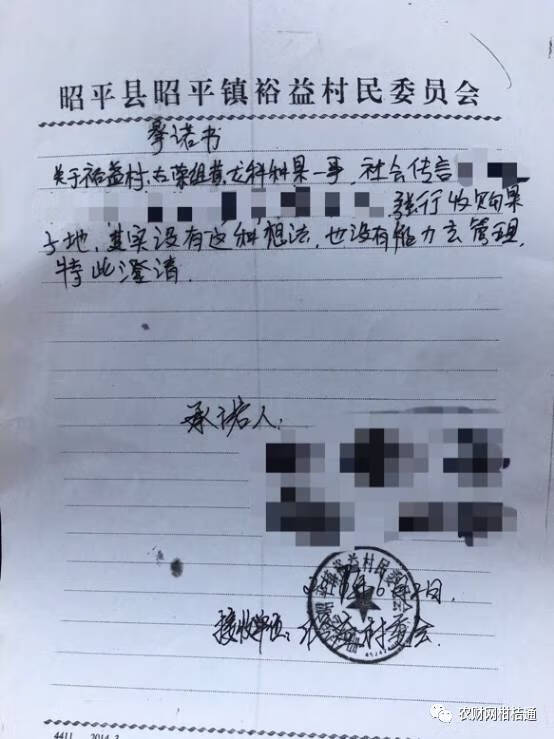 昭平县昭平镇裕益村民委员会
承诺书
关于裕益村古荣组黄龙科种果一事，社会传言
强行收购果
与地，其实没有这种想法，也没有能力去管理，
特此澄清．
承诺人：
裕益村民委员会
接收单位：裕益村委会
4411 2014.3
农财网柑桔通